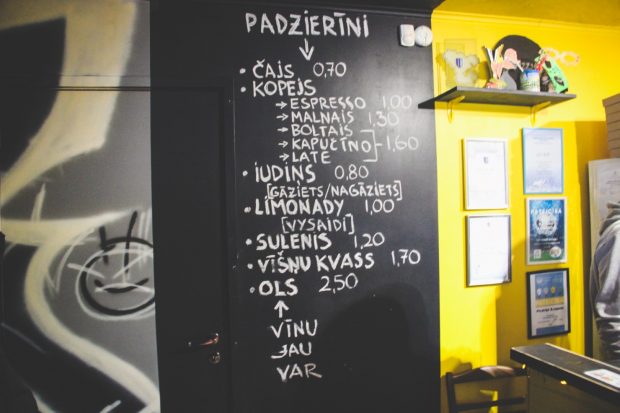 PADZIERĪNI
↓
• ČAJS 0,70
• KOPEJS
→ ESPRESSO 1,00
→ MALNAIS 1,30
→ BOLTAIS
→ KAPUČĪNO 1,60
→ LATE
• IUDINS 0,80
[GĀZIETS/NAGĀZIETS]
• LĪMONADY 1,00
[VYSAIDI]
• SULENIS 1,20
• VĪŠŅU KVASS 1,70
• OLS 2,50
↑
VĪNU
JAU
VAR